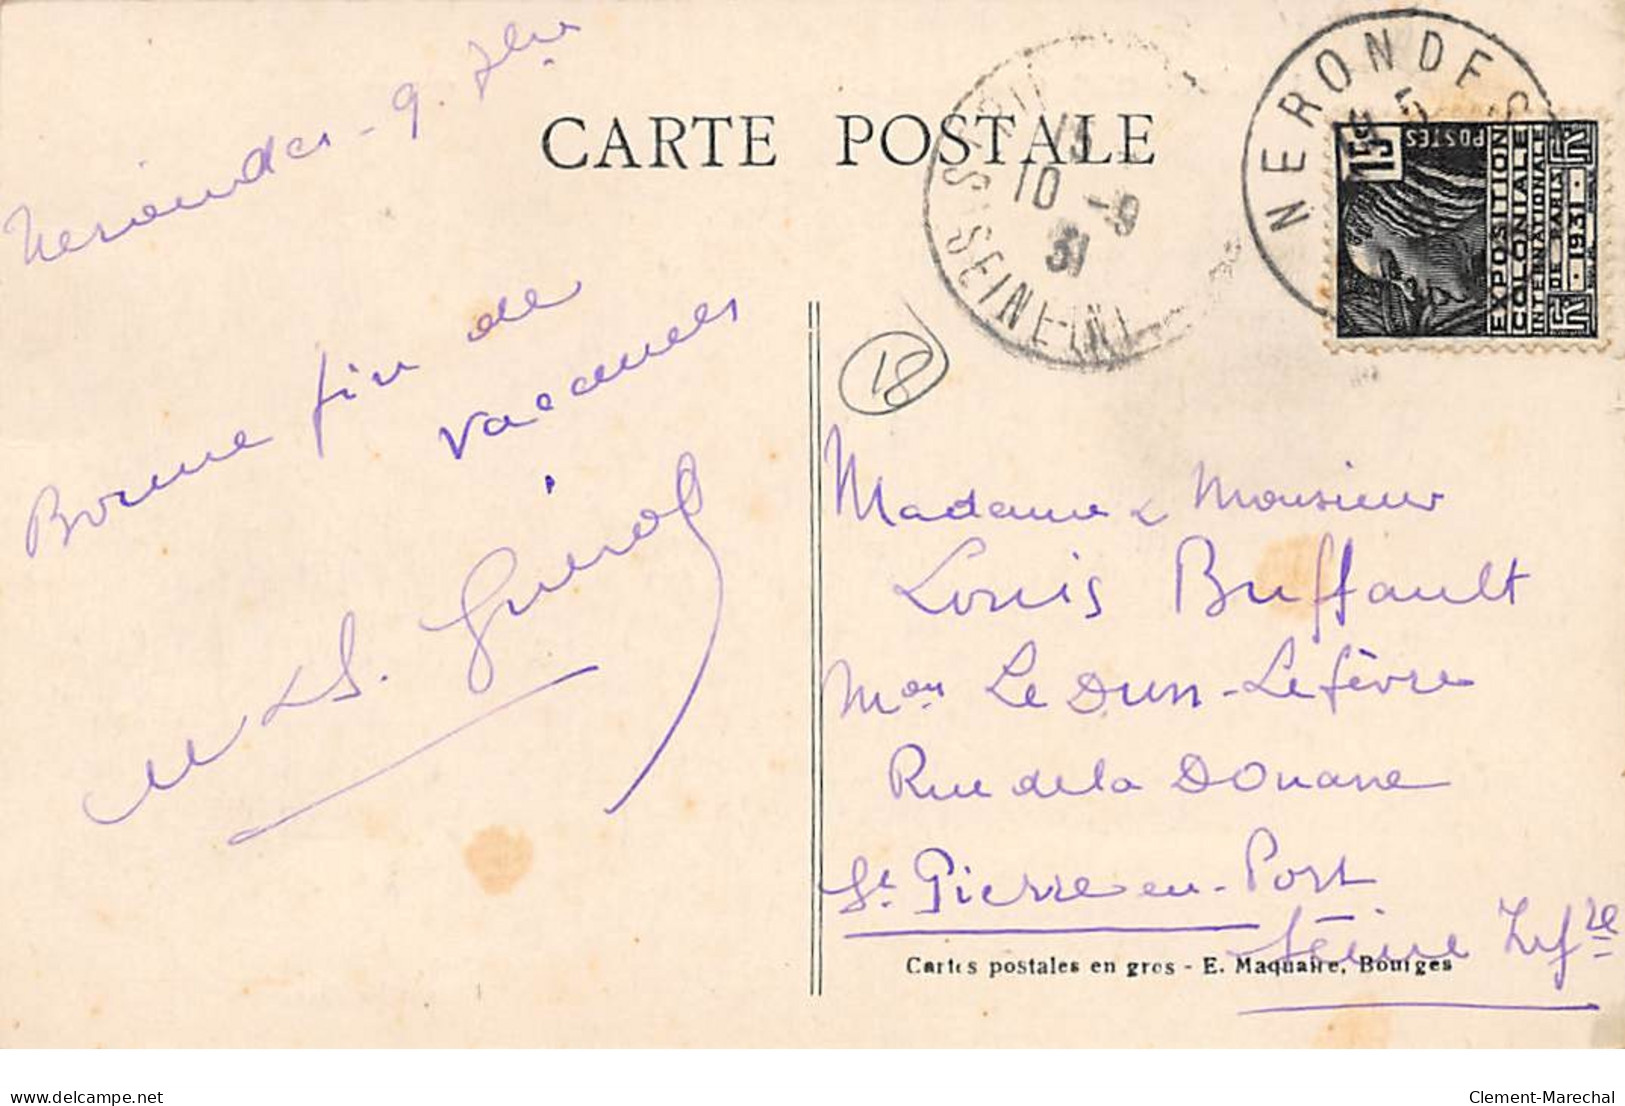 CARTE POSTALE
Nérondes - 9. 7bre
Bonne fin de
vacances
M & S. Guénot
NERONDES
15c
POSTES
EXPOSITION
COLONIALE
INTERNATIONALE
DE PARIS
1931
10 -9
31
SEINE-INF
18
Madame & Monsieur
Louis Buffault
Mon Le Dun-Lefèvre
Rue de la Douane
St. Pierre-en-Port
Seine Infre
Cartes postales en gros - E. Maquaire, Bourges
www.delcampe.net
Clement-Marechal